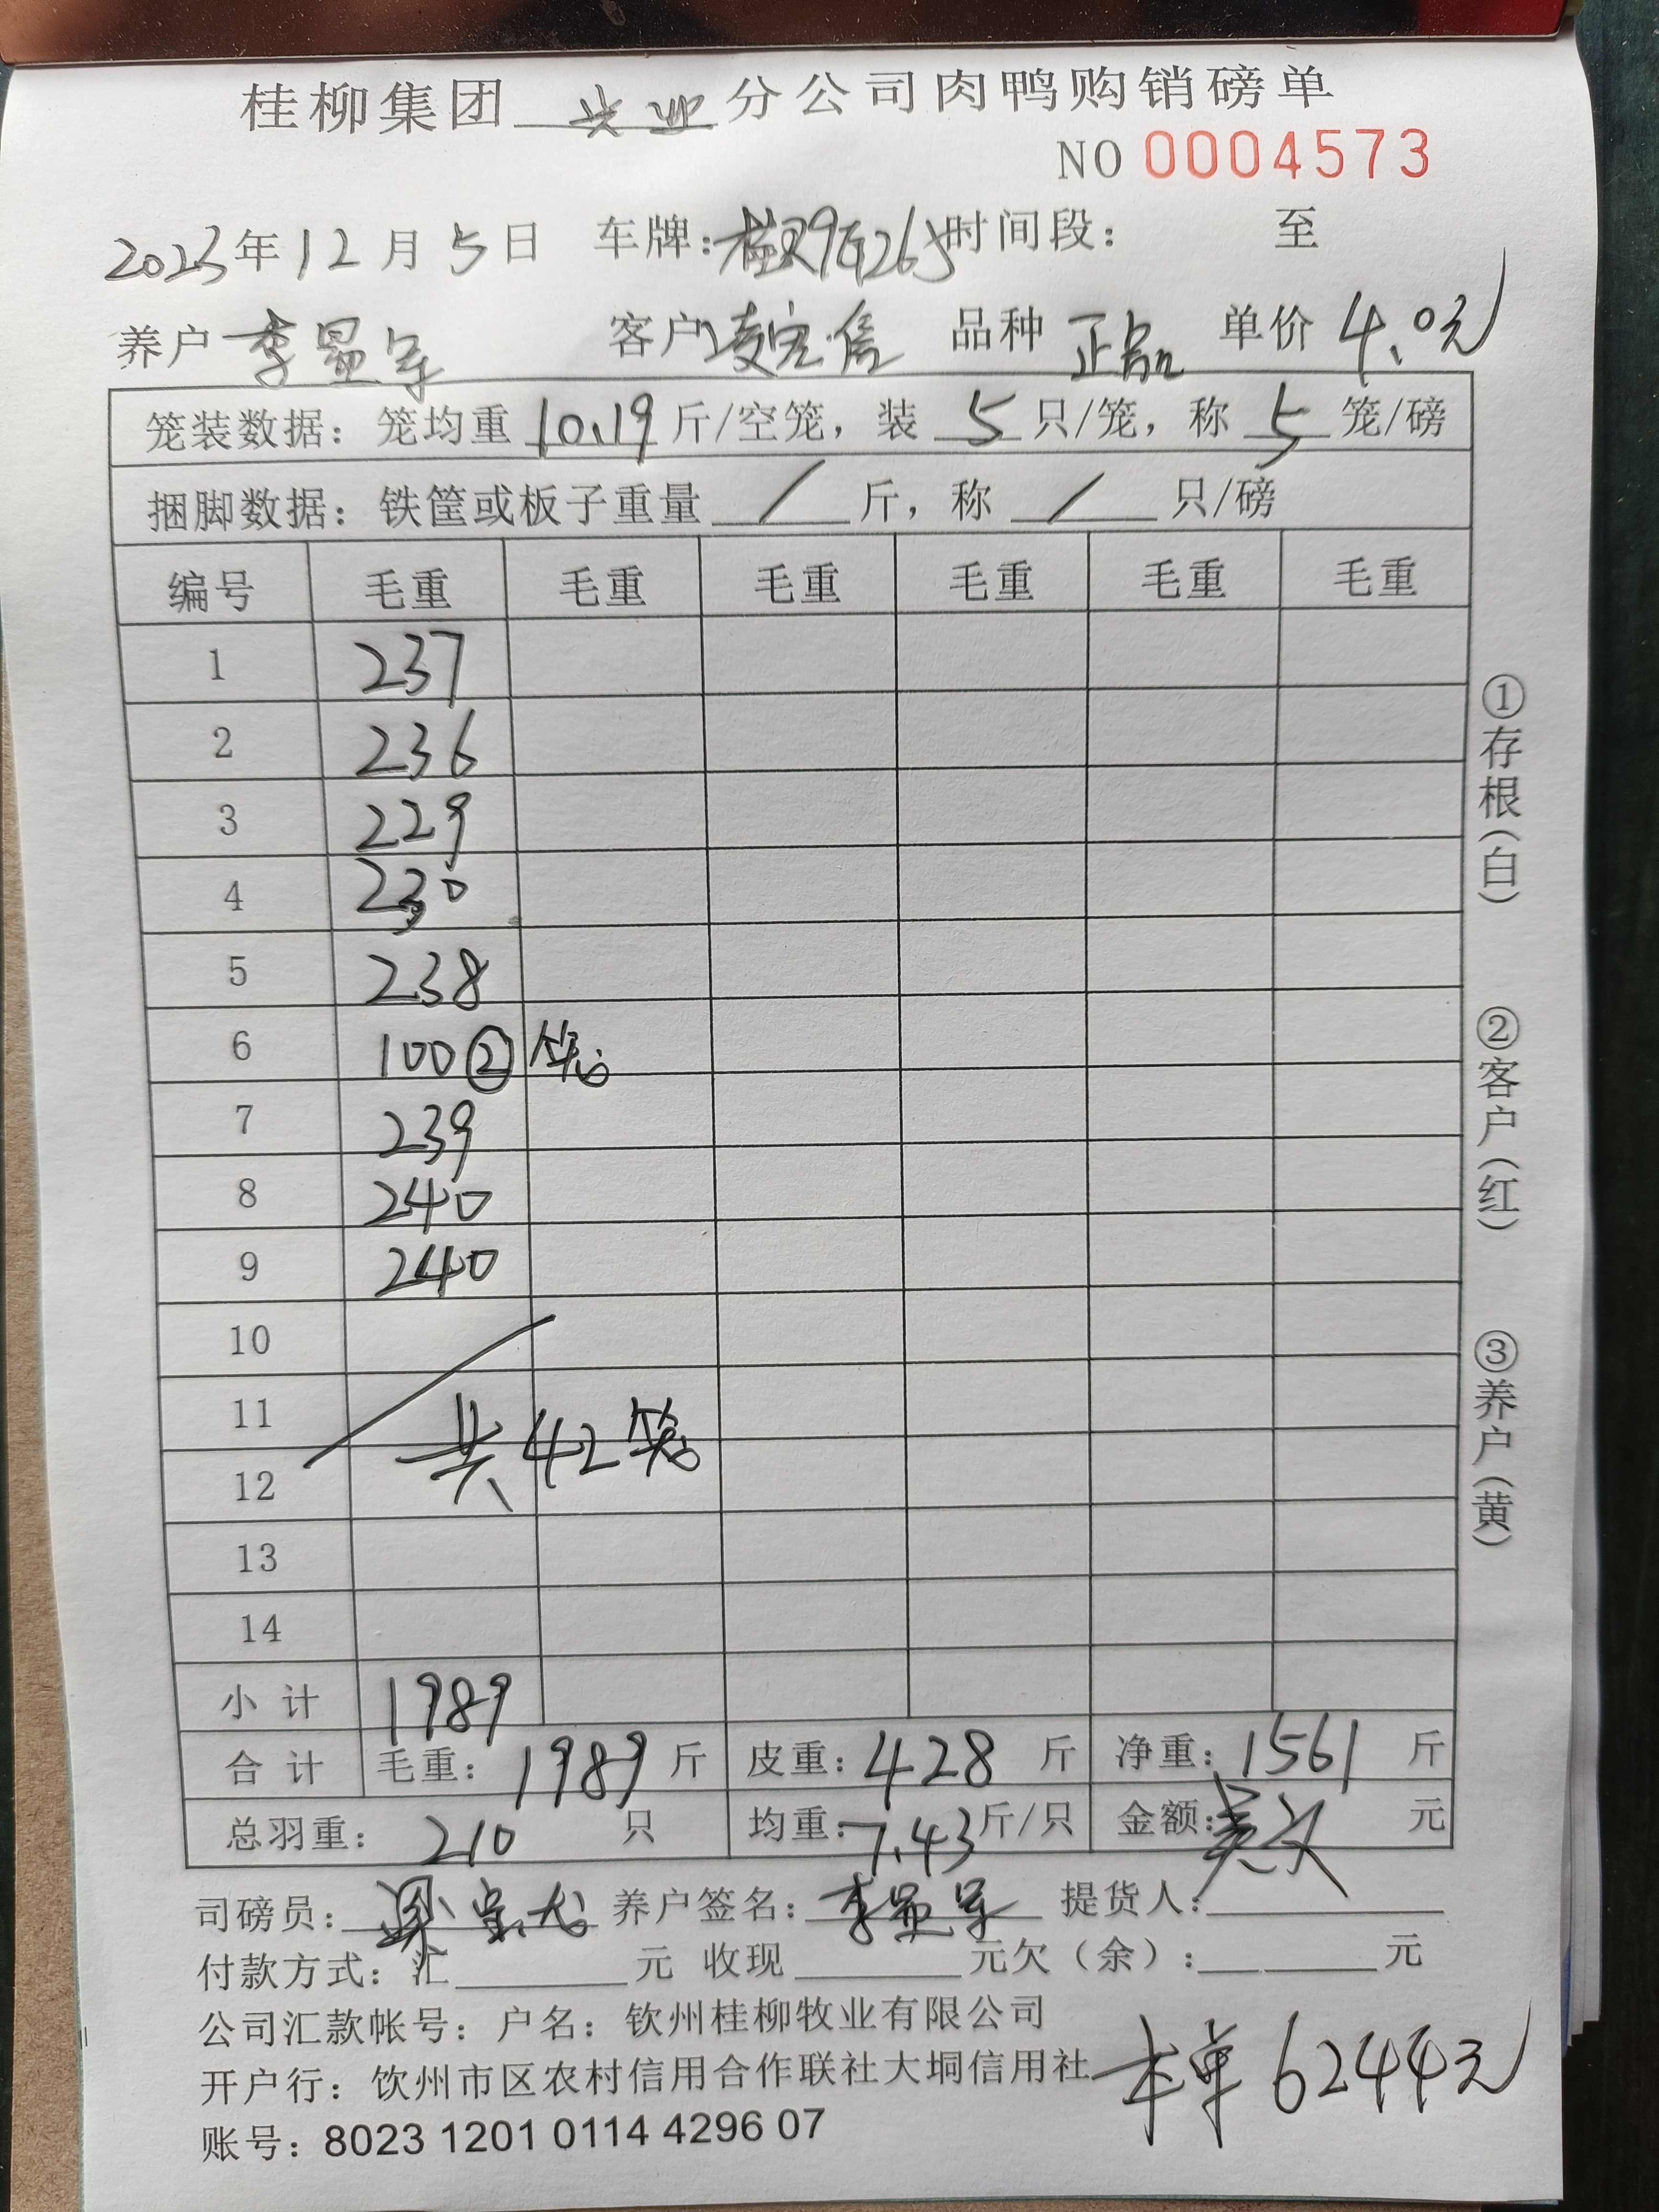 桂柳集团 兴业 分公司肉鸭购销磅单
NO 0004573
2023年12月5日 车牌: 时间段: 至
养户 李显军 客户 凌定信 品种 正品 单价 4.0元
笼装数据: 笼均重 10.19 斤/空笼, 装 5 只/笼, 称 5 笼/磅
捆脚数据: 铁筐或板子重量 / 斤, 称 / 只/磅
编号 毛重 毛重 毛重 毛重 毛重 毛重
1 237
2 236
3 229
4 230
5 238
6 100 ② 笼
7 239
8 240
9 240
10
11 共42笼
12
13
14
小计 1989
合计 毛重: 1989 斤 皮重: 428 斤 净重: 1561 斤
总羽重: 210 只 均重: 7.43 斤/只 金额: 元
司磅员: 养户签名: 李显军 提货人:
付款方式: 汇 元 收现 元欠(余): 元
公司汇款帐号: 户名: 钦州桂柳牧业有限公司
开户行: 钦州市区农村信用合作联社大垌信用社
本单6244元
账号: 8023 1201 0114 4296 07
①存根(白)
②客户(红)
③养户(黄)